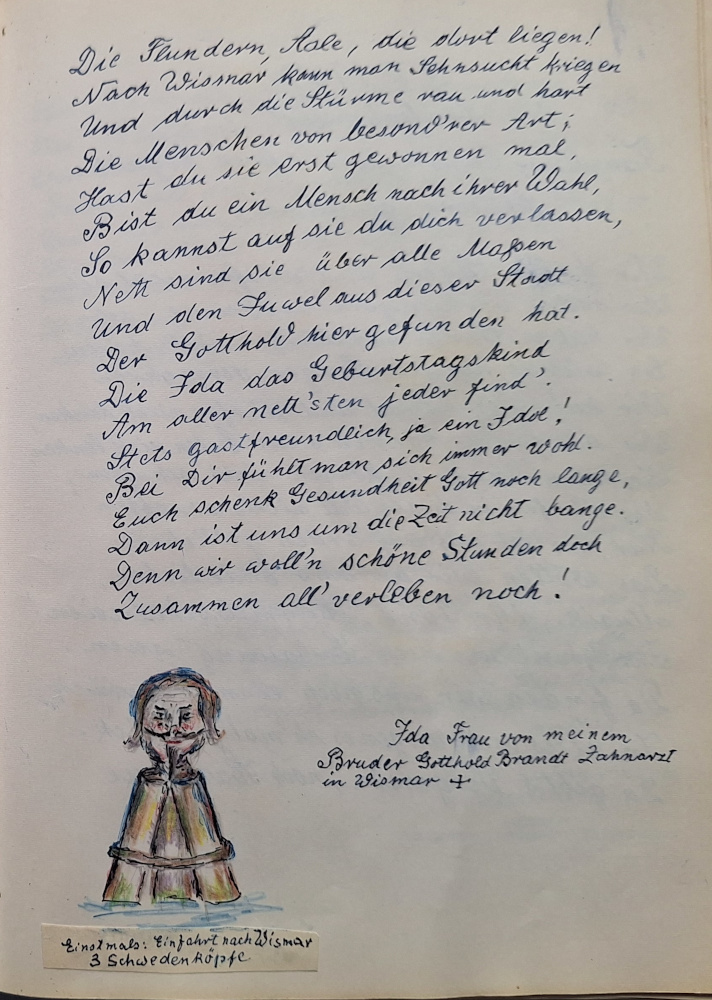 Die Flundern, Aale, die dort liegen!
Nach Wismar kann man Sehnsucht kriegen
Und durch die Stürme rau und hart
Die Menschen von besond'rer Art;
Hast du sie erst gewonnen mal,
Bist du ein Mensch nach ihrer Wahl,
So kannst auf sie du dich verlassen,
Nett sind sie über alle Maßen
Und den Juwel aus dieser Stadt
Der Gotthold hier gefunden hat.
Die Ida das Geburtstagskind
Am aller nett'sten jeder find'.
Stets gastfreundlich, ja ein Idol!
Bei Dir fühlt man sich immer wohl.
Euch schenk Gesundheit Gott noch lange,
Dann ist uns um die Zeit nicht bange.
Denn wir woll'n schöne Stunden doch
Zusammen all' verleben noch!
Ida Frau von meinem
Bruder Gotthold Brandt Zahnarzt
in Wismar
Einstmals: Einfahrt nach Wismar
3 Schwedenköpfe